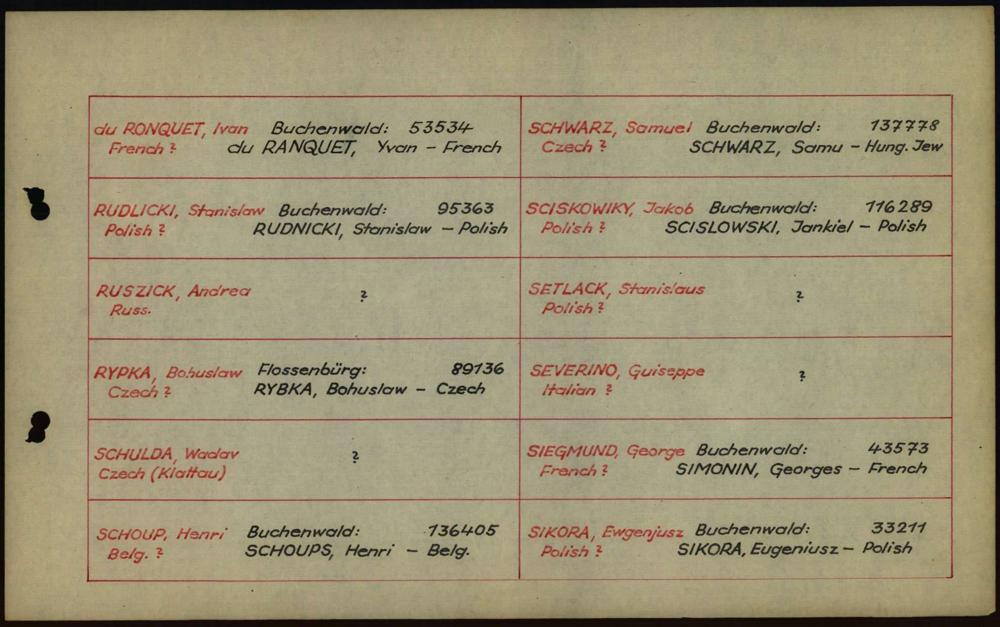 du RONQUET, Ivan Buchenwald: 53534
French ? du RANQUET, Yvan – French
RUDLICKI, Stanislaw Buchenwald: 95363
Polish ? RUDNICKI, Stanislaw – Polish
RUSZICK, Andrea ?
Russ.
RYPKA, Bohuslaw Flossenbürg: 89136
Czech ? RYBKA, Bohuslaw – Czech
SCHULDA, Waclav ?
Czech (Klattau)
SCHOUP, Henri Buchenwald: 136405
Belg. ? SCHOUPS, Henri – Belg.
SCHWARZ, Samuel Buchenwald: 137778
Czech ? SCHWARZ, Samu – Hung. Jew
SCISKOWIKY, Jakob Buchenwald: 116289
Polish ? SCISLOWSKI, Jankiel – Polish
SETLACK, Stanislaus ?
Polish ?
SEVERINO, Guiseppe ?
Italian ?
SIEGMUND, George Buchenwald: 43573
French ? SIMONIN, Georges – French
SIKORA, Ewgenjusz Buchenwald: 33211
Polish ? SIKORA, Eugeniusz – Polish